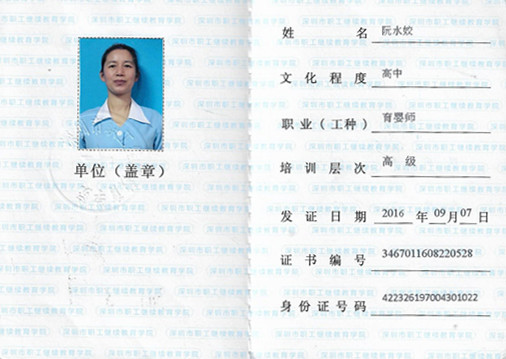 单位（盖章）
姓 名 阮水姣
文化程度 高中
职业（工种） 育婴师
培训层次 高 级
发证日期 2016 年 09 月 07 日
证书编号 3467011608220528
身份证号码 422326197004301022
深圳市职工继续教育学院